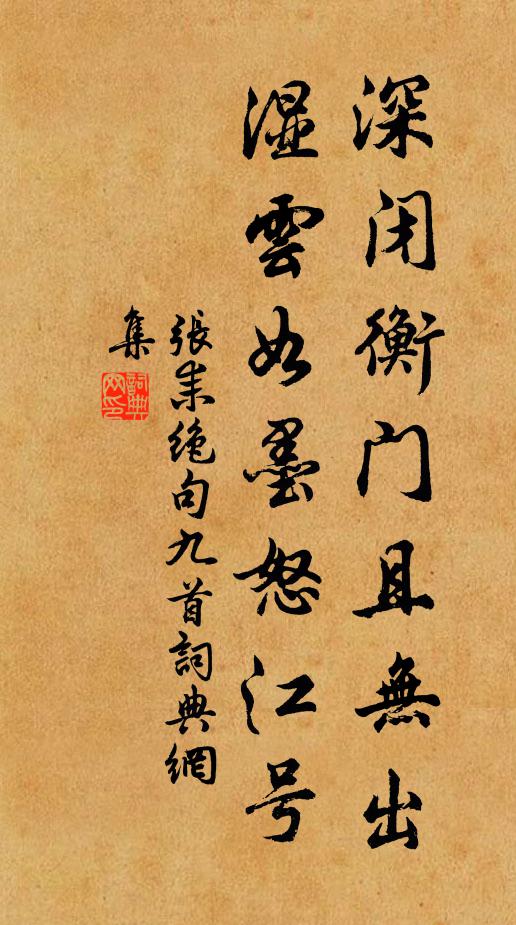 深闭衡门且無出
湿雲如墨怒江号
張耒絶句九首詞典網
集
詞典网印